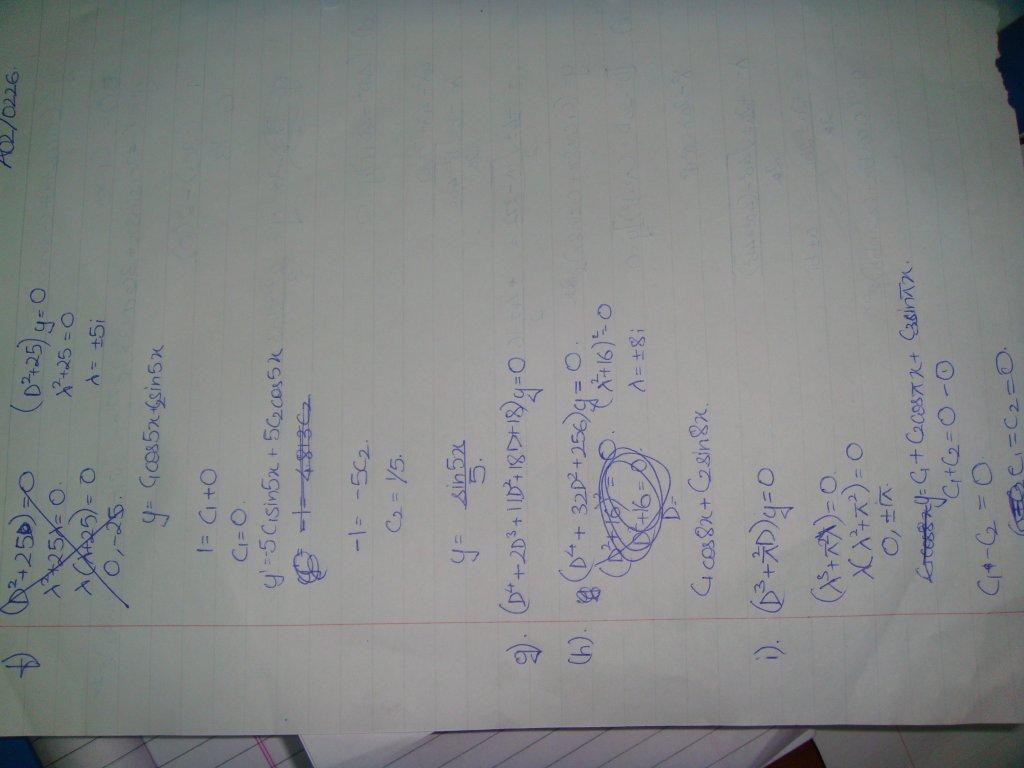 A02/0226
f) (D²+25D)=0 (D²+25)y=0
λ²+25λ=0 λ²+25=0
λ(λ+25)=0 λ=±5i
0,-25.
y= C₁cos5x+C₂sin5x
1=C₁+0
C₁=0.
y'=-5C₁sin5x+5C₂cos5x
-1=-5C₂.
C₂=1/5.
y= sin5x/5.
g). (D⁴+2D³+11D²+18D+18)y=0
(h). (D⁴+32D²+256)y=0.
(D²+16)²=0. (λ²+16)²=0
D²+16=0 λ=±8i
D=
C₁cos8x+C₂sin8x.
i). (D³+π²D)y=0
(λ³+π²λ)=0.
λ(λ²+π²)=0
0,±π.
y=C₁+C₂cosπx+C₃sinπx.
C₁+C₂=0-①
C₁-C₂=0
C₁=C₂=0.